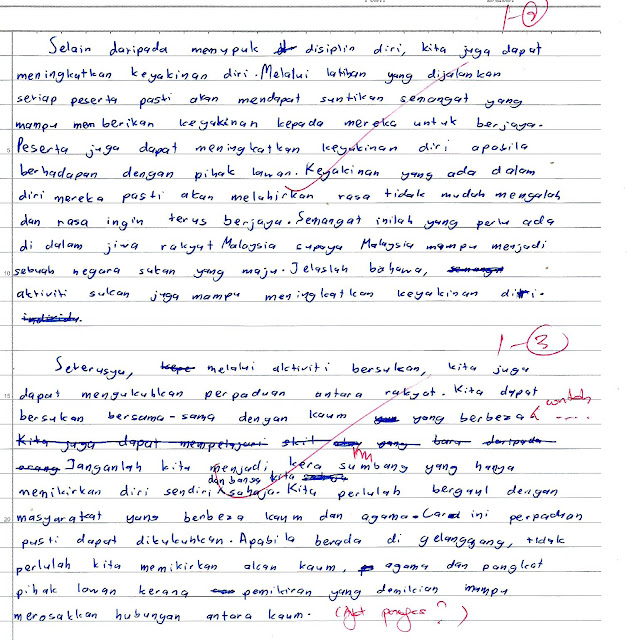 1-2
Selain daripada menupuk disiplin diri, kita juga dapat
meningkatkan keyakinan diri. Melalui latihan yang dijalankan
setiap peserta pasti akan mendapat suntikan semangat yang
mampu memberikan keyakinan kepada mereka untuk berjaya.
5 Peserta juga dapat meningkatkan keyakinan diri apabila
berhadapan dengan pihak lawan. Keyakinan yang ada dalam
diri mereka pasti akan melahirkan rasa tidak mudah mengalah
dan rasa ingin terus berjaya. Semangat inilah yang perlu ada
di dalam jiwa rakyat Malaysia supaya Malaysia mampu menjadi
10 sebuah negara sukan yang maju. Jelaslah bahawa,
aktiviti sukan juga mampu meningkatkan keyakinan diri.
1-3
Seterusya, melalui aktiviti bersukan, kita juga
15 dapat mengukuhkan perpaduan antara rakyat. Kita dapat
contoh
bersukan bersama-sama dengan kaum yang berbeza ....
Kita juga dapat mempelajari skil yang baru daripada
orang Janganlah kita menjadi kera sumbang yang hanya
dan bangsa kita
menikirkan diri sendiri sahaja. Kita perlulah bergaul dengan
20 masyarakat yang berbeza kaum dan agama. Cara ini perpaduan
pasti dapat dikukuhkan. Apabila berada di gelanggang, tidak
perlulah kita memikirkan akan kaum, agama dan pangkat
pihak lawan kerana pemikiran yang demikian mampu
merosakkan hubungan antara kaum. (Ayat ?)